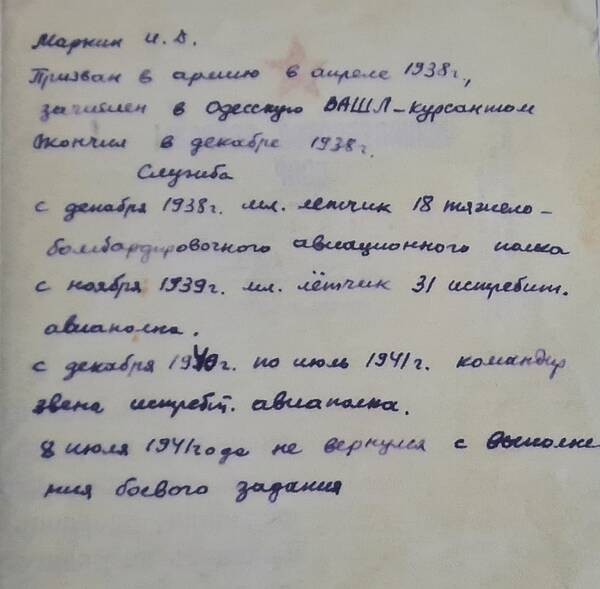 Маркин И. Д.
Призван в армию в апреле 1938г.,
зачислен в Одесскую ВАШЛ-курсантом
Окончил в декабре 1938г.
Служба
с декабря 1938г. мл. лётчик 18 тяжело-
бомбардировочного авиационного полка
с ноября 1939г. мл. лётчик 31 истребит.
авиаполка.
с декабря 1940г. по июль 1941г. командир
звена истребит. авиаполка.
8 июля 1941года не вернулся с выполне
ния боевого задания